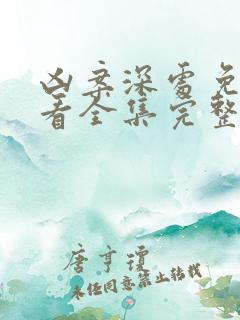 凶案深处免
看全集完整
唐亨琼
未经同意禁止转载